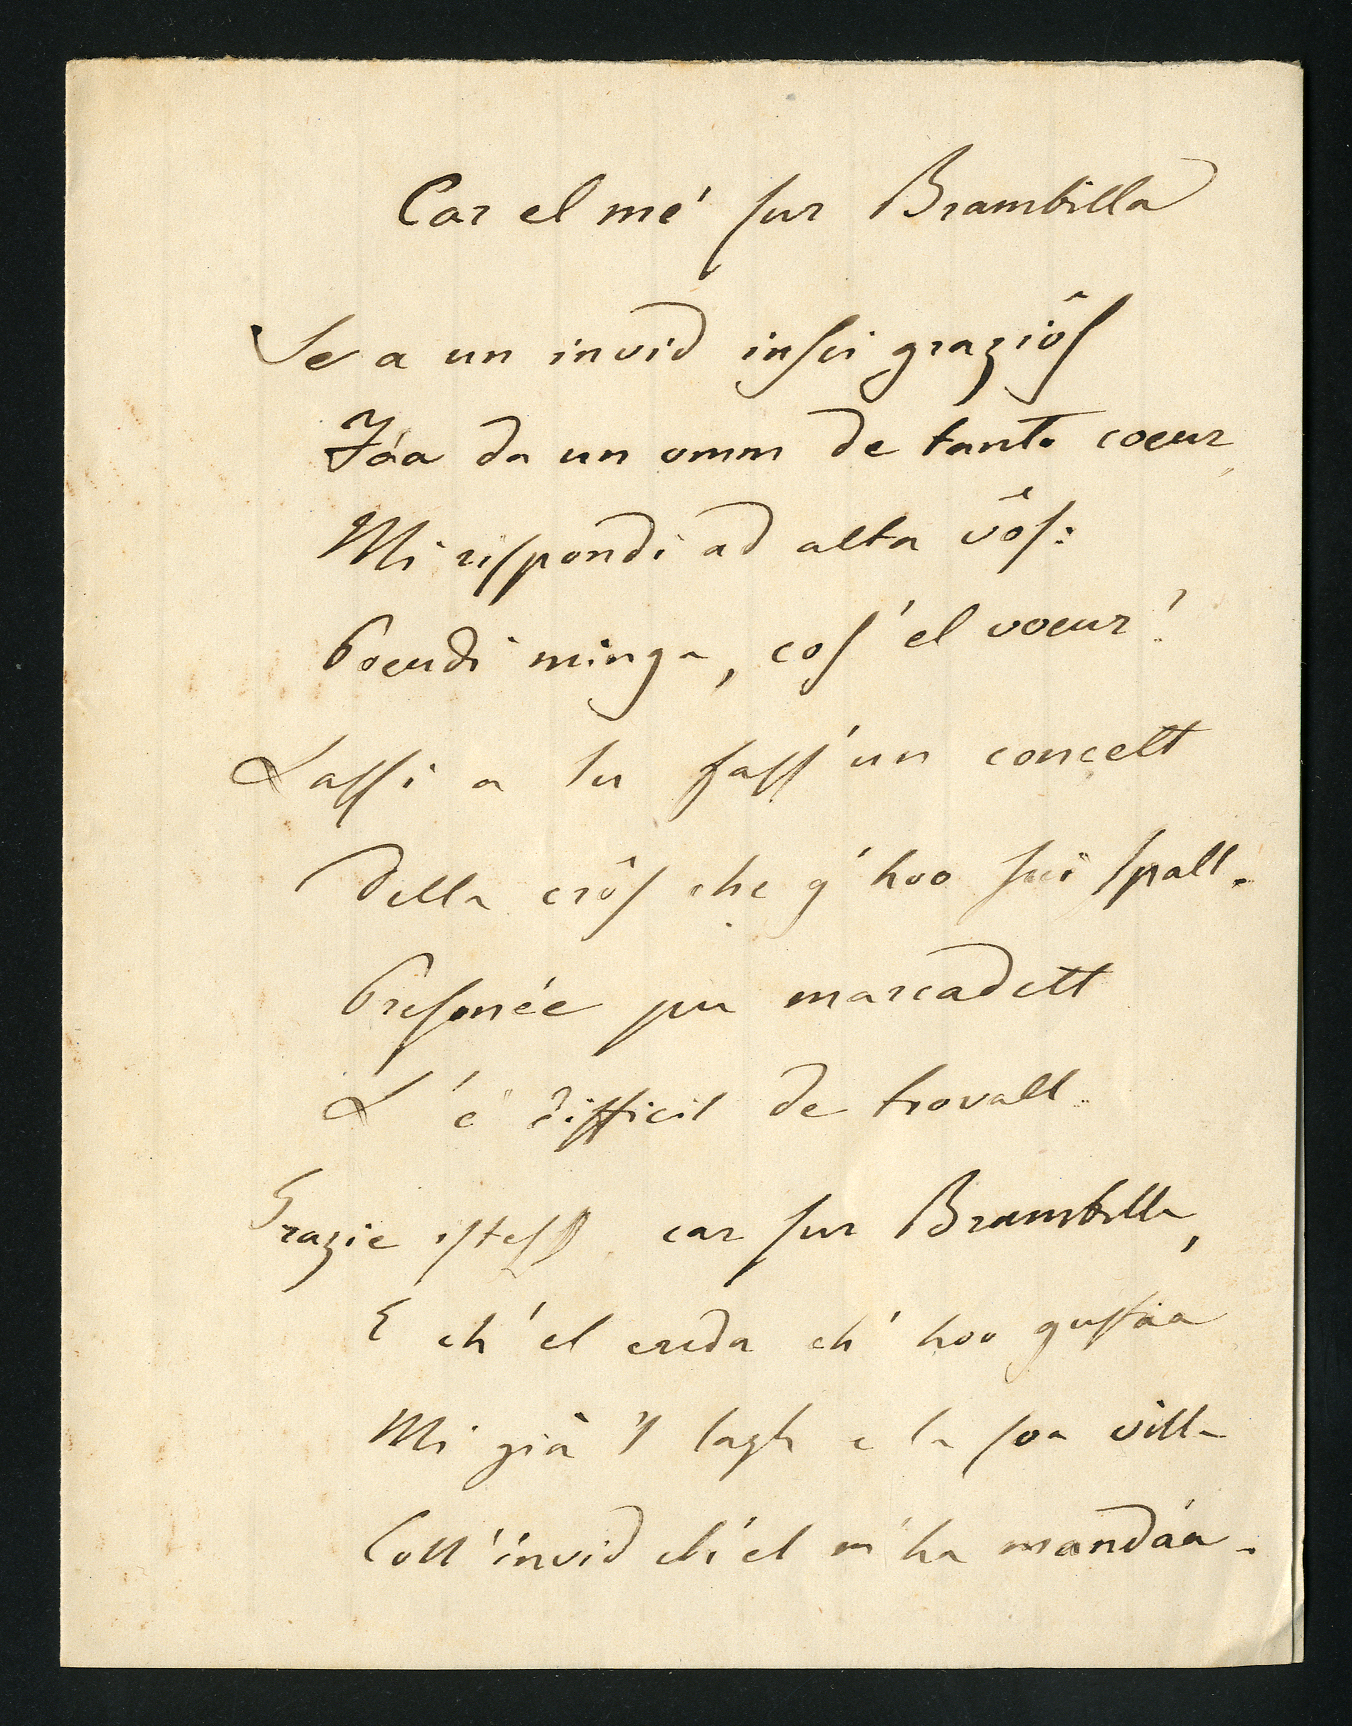 Car el mé sur Brambilla
Se a un invid insci graziôs
Fáa da un omm de tanto coeur
Mi rispondi ad alta vôs:
Poeudi minga, cos'el voeur!
Lassi a lu fass'un concett
Della crôs che g'hoo sui spall.
Presonée pu marcadett
L'è difficil de trovall.
Grazie istess, car sur Brambilla,
E ch'el creda ch'hoo gustaa
Mi già 'l lagh e la soa villa
Coll'invid ch'el m'ha mandáa.